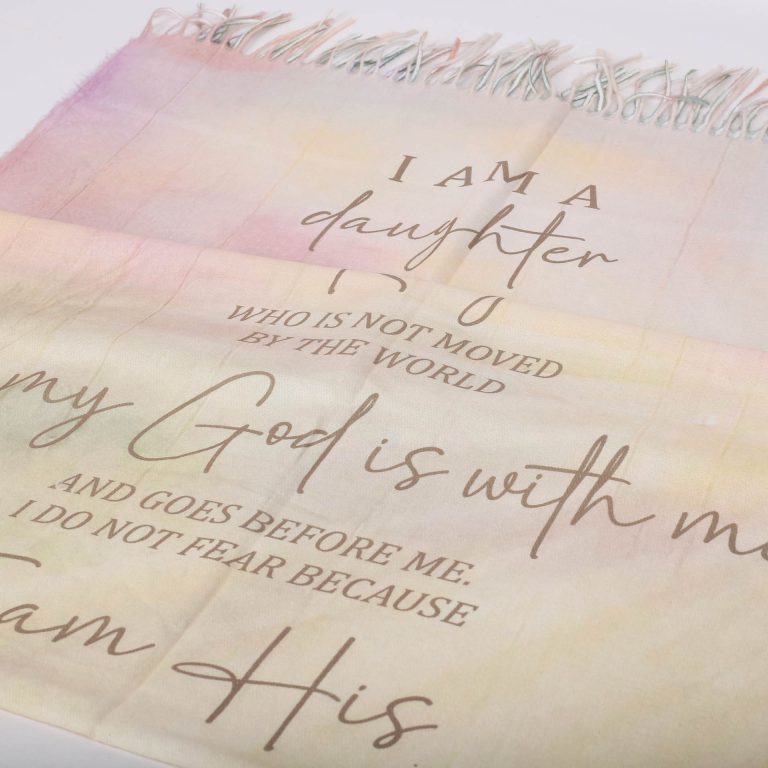 I AM A
daughter
WHO IS NOT MOVED
BY THE WORLD
my God is with me
AND GOES BEFORE ME.
I DO NOT FEAR BECAUSE
I am His.